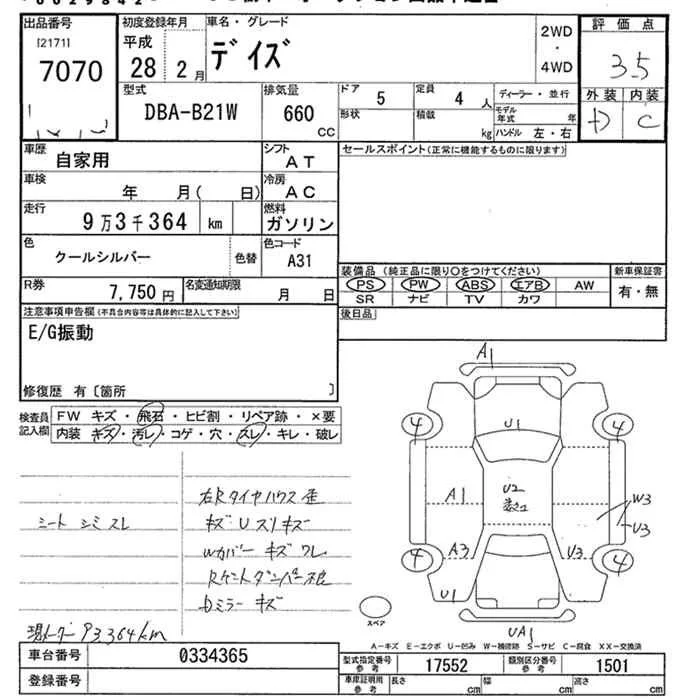 出品番号
[2171]
7070
初度登録年月
平成
28 2月
車名・グレード
デイズ
2WD
・
4WD
評価点
3.5
外装 内装
D C
型式
DBA-B21W
排気量
660
cc
ドア
5
定員
4人
形状
積載
kg
ディーラー・並行
モデル年式 年
ハンドル 左・右
車歴
自家用
シフト
AT
セールスポイント(正常に機能するものに限ります)
車検
年 月( 日)
冷房
AC
走行
9万3千364 km
燃料
ガソリン
色
クールシルバー
色替
色コード
A31
R券
7,750円
名変通知期限
月 日
装備品(純正品に限り○をつけてください)
新車保証書
PS PW ABS エアB AW
有・無
SR ナビ TV カワ
後日品
注意事項申告欄(不具合内容等は具体的に記入して下さい)
E/G振動
修復歴 有〔箇所 〕
検査員記入欄
FW キズ・飛石・ヒビ割・リペア跡・×要
内装 キズ・汚レ・コゲ・穴・スレ・キレ・破レ
シート シミ スレ
右Rタイヤハウス 歪
キズ U スリキズ
Wカバー キズ ワレ
Rゲートダンパー不良
Dミラー キズ
現メーター 93364km
A1
4
4
U1
A1
U2
W3
U3
A3
U3
4
4
U1
UA1
スペア
A-キズ E-エクボ U-凹み W-補修跡 S-サビ C-腐食 XX-交換済
車台番号
0334365
登録番号
型式指定番号
参考
17552
類別区分番号
参考
1501
車庫証明用
参考
長さ cm
幅 cm
高さ cm